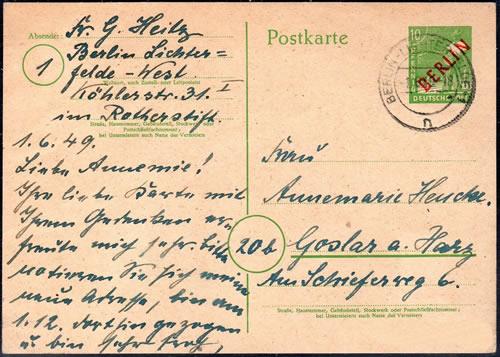 Absender:
Fr. G. Heitz
Berlin Lichter=
felde-West
Wohnort, auch Zustell- oder Leitpostamt
Köhlerstr. 31. I
im Rotherstift.
Straße, Hausnummer, Gebäudeteil, Stockwerk oder
Postschließfachnummer;
bei Untermietern auch Name des Vermieters
1
1.6.49.
Liebe Annemie!
Ihre liebe Karte mit
Ihrem Gedenken er-
freute mich sehr. bitte
notieren Sie sich meine
neue Adresse, bin am
1.12. dorthin gezogen
u bin sehr froh,
Postkarte
10
BERLIN
DEUTSCHE
BERLIN-LICHTERFELDE
n
Frau
Annemarie Hencke.
20b
Goslar a. Harz
Am Schieferweg 6.
Straße, Hausnummer, Gebäudeteil, Stockwerk oder Postschließfachnummer;
bei Untermietern auch Name des Vermieters